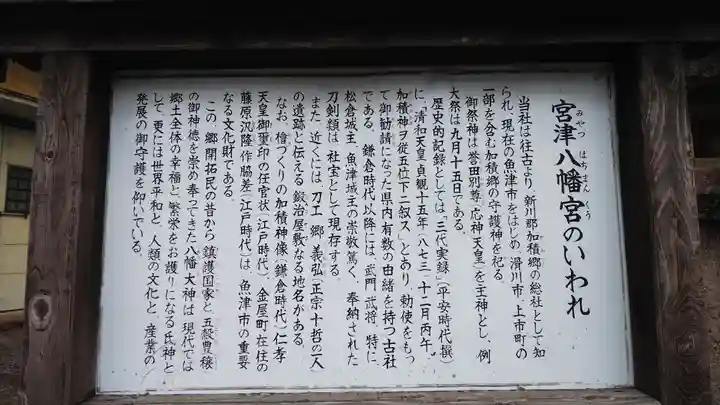 宮津八幡宮のいわれ
みやづ はちまんぐう
当社は往古より、新川郡加積郷の総社として知
られ、現在の魚津市をはじめ、滑川市、上市町の
一部を含む加積郷の守護神を祀る。
御祭神は誉田別尊（応神天皇）を主神とし、例
大祭は九月十五日である。
歴史的記録としては、「三代実録」（平安時代撰）
に、「清和天皇貞観十五年（八七三）十二月丙午、
加積神ヲ従五位下ニ叙ス」とあり、勅使をもっ
て御勧請になった県内有数の由緒を持つ古社
である。鎌倉時代以降には、武門、武将、特に、
松倉城主、魚津城主の崇敬篤く、奉納された
刀剣類は、社宝として現存する。
また、近くには、刀工 郷義弘（正宗十哲の一人）
の遺跡と伝える鍛冶屋敷なる地名がある。
なお、檜づくりの加積神像（鎌倉時代）、仁孝
天皇御璽印の任官状（江戸時代）、金屋町在住の
藤原汎隆作脇差（江戸時代）は、魚津市の重要
なる文化財である。
この、郷開拓民の昔から「鎮護国家」と「五穀豊穣」
の御神徳を崇め奉ってきた八幡大神は、現代では
郷土全体の幸福と、繁栄をお護りになる氏神と
して、更には世界平和と、人類の文化と、産業の
発展の御守護を仰いでいる。